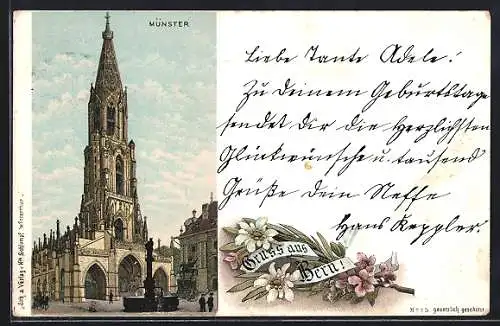 MÜNSTER
Liebe Tante Adele!
Zu Deinem Geburtstage
sendet Dir die herzlichsten
Glückwünsche u. tausend
Grüße dein Neffe
Hans Keppler.
Gruss aus
Bern!
gesetzlich geschützt
Lith. & Verlag v. Hch. Schlumpf, Winterthur.